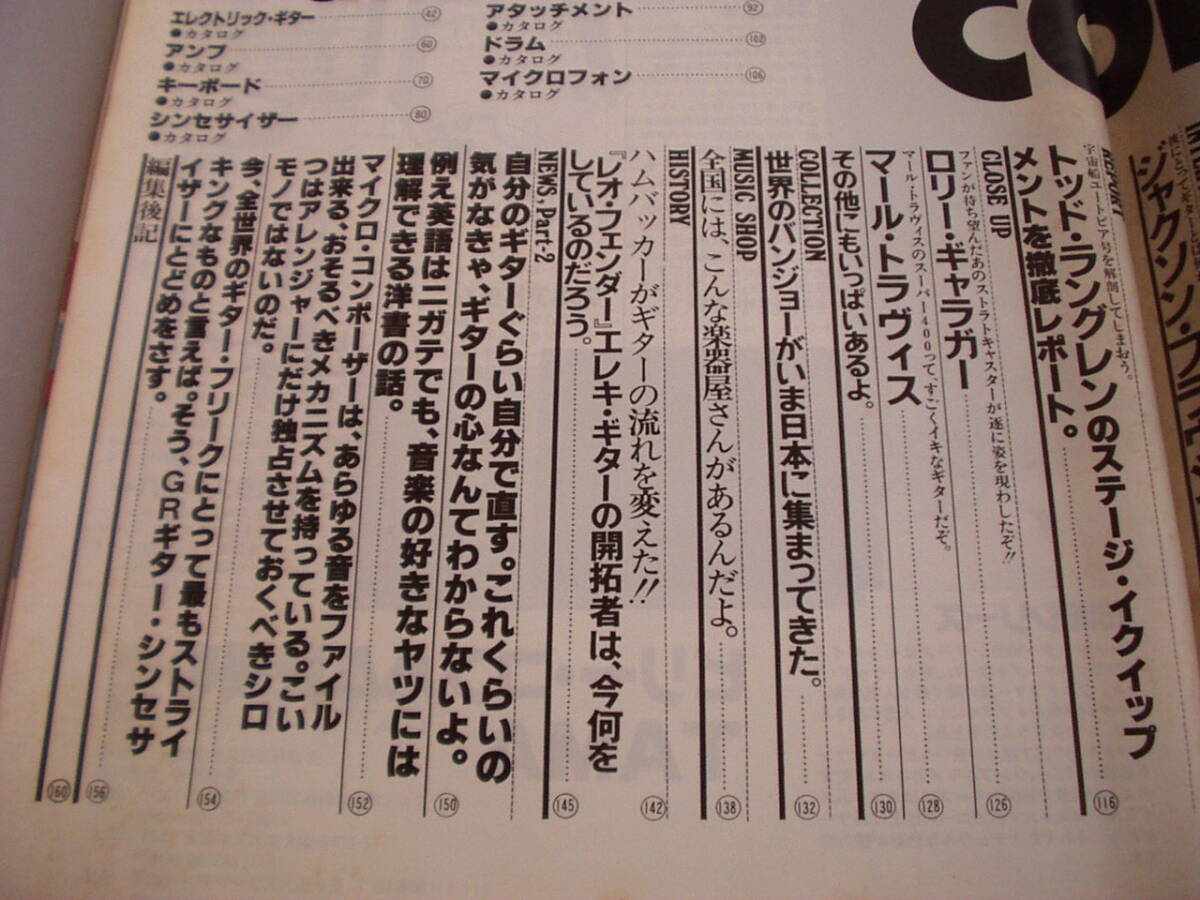 CO
エレクトリック・ギター 42
●カタログ
アンプ 60
●カタログ
キーボード 70
●カタログ
シンセサイザー 80
●カタログ
アタッチメント 92
●カタログ
ドラム 102
●カタログ
マイクロフォン 106
●カタログ
ジャクソン・ブラウン
REPORT
宇宙船ユートピア号を解剖してしまおう。
トッド・ラングレンのステージ・イクイップ
メントを徹底レポート。 116
CLOSE UP
ファンが待ち望んだあのストラトキャスターが遂に姿を現わしたぞ!!
ロリー・ギャラガー 126
マール・トラヴィスのスーパー400って、すごくイキなギターだぞ。
マール・トラヴィス 128
その他にもいっぱいあるよ。 130
COLLECTION
世界のバンジョーがいま日本に集まってきた。 132
MUSIC SHOP
全国には、こんな楽器屋さんがあるんだよ。 138
HISTORY
ハムバッカーがギターの流れを変えた!! 142
『レオ・フェンダー』エレキ・ギターの開拓者は、今何を
しているのだろう。 145
NEWS, Part-2
自分のギターぐらい自分で直す。これくらいの
気がなきゃ、ギターの心なんてわからないよ。 150
例え英語はニガテでも、音楽の好きなヤツには
理解できる洋書の話。 152
マイクロ・コンポーザーは、あらゆる音をファイル
出来る、おそるべきメカニズムを持っている。こい
つはアレンジャーにだけ独占させておくべきシロ
モノではないのだ。 154
今、全世界のギター・フリークにとって最もストライ
キングなものと言えば。そう、GRギター・シンセサ
イザーにとどめをさす。 156
編集後記 160